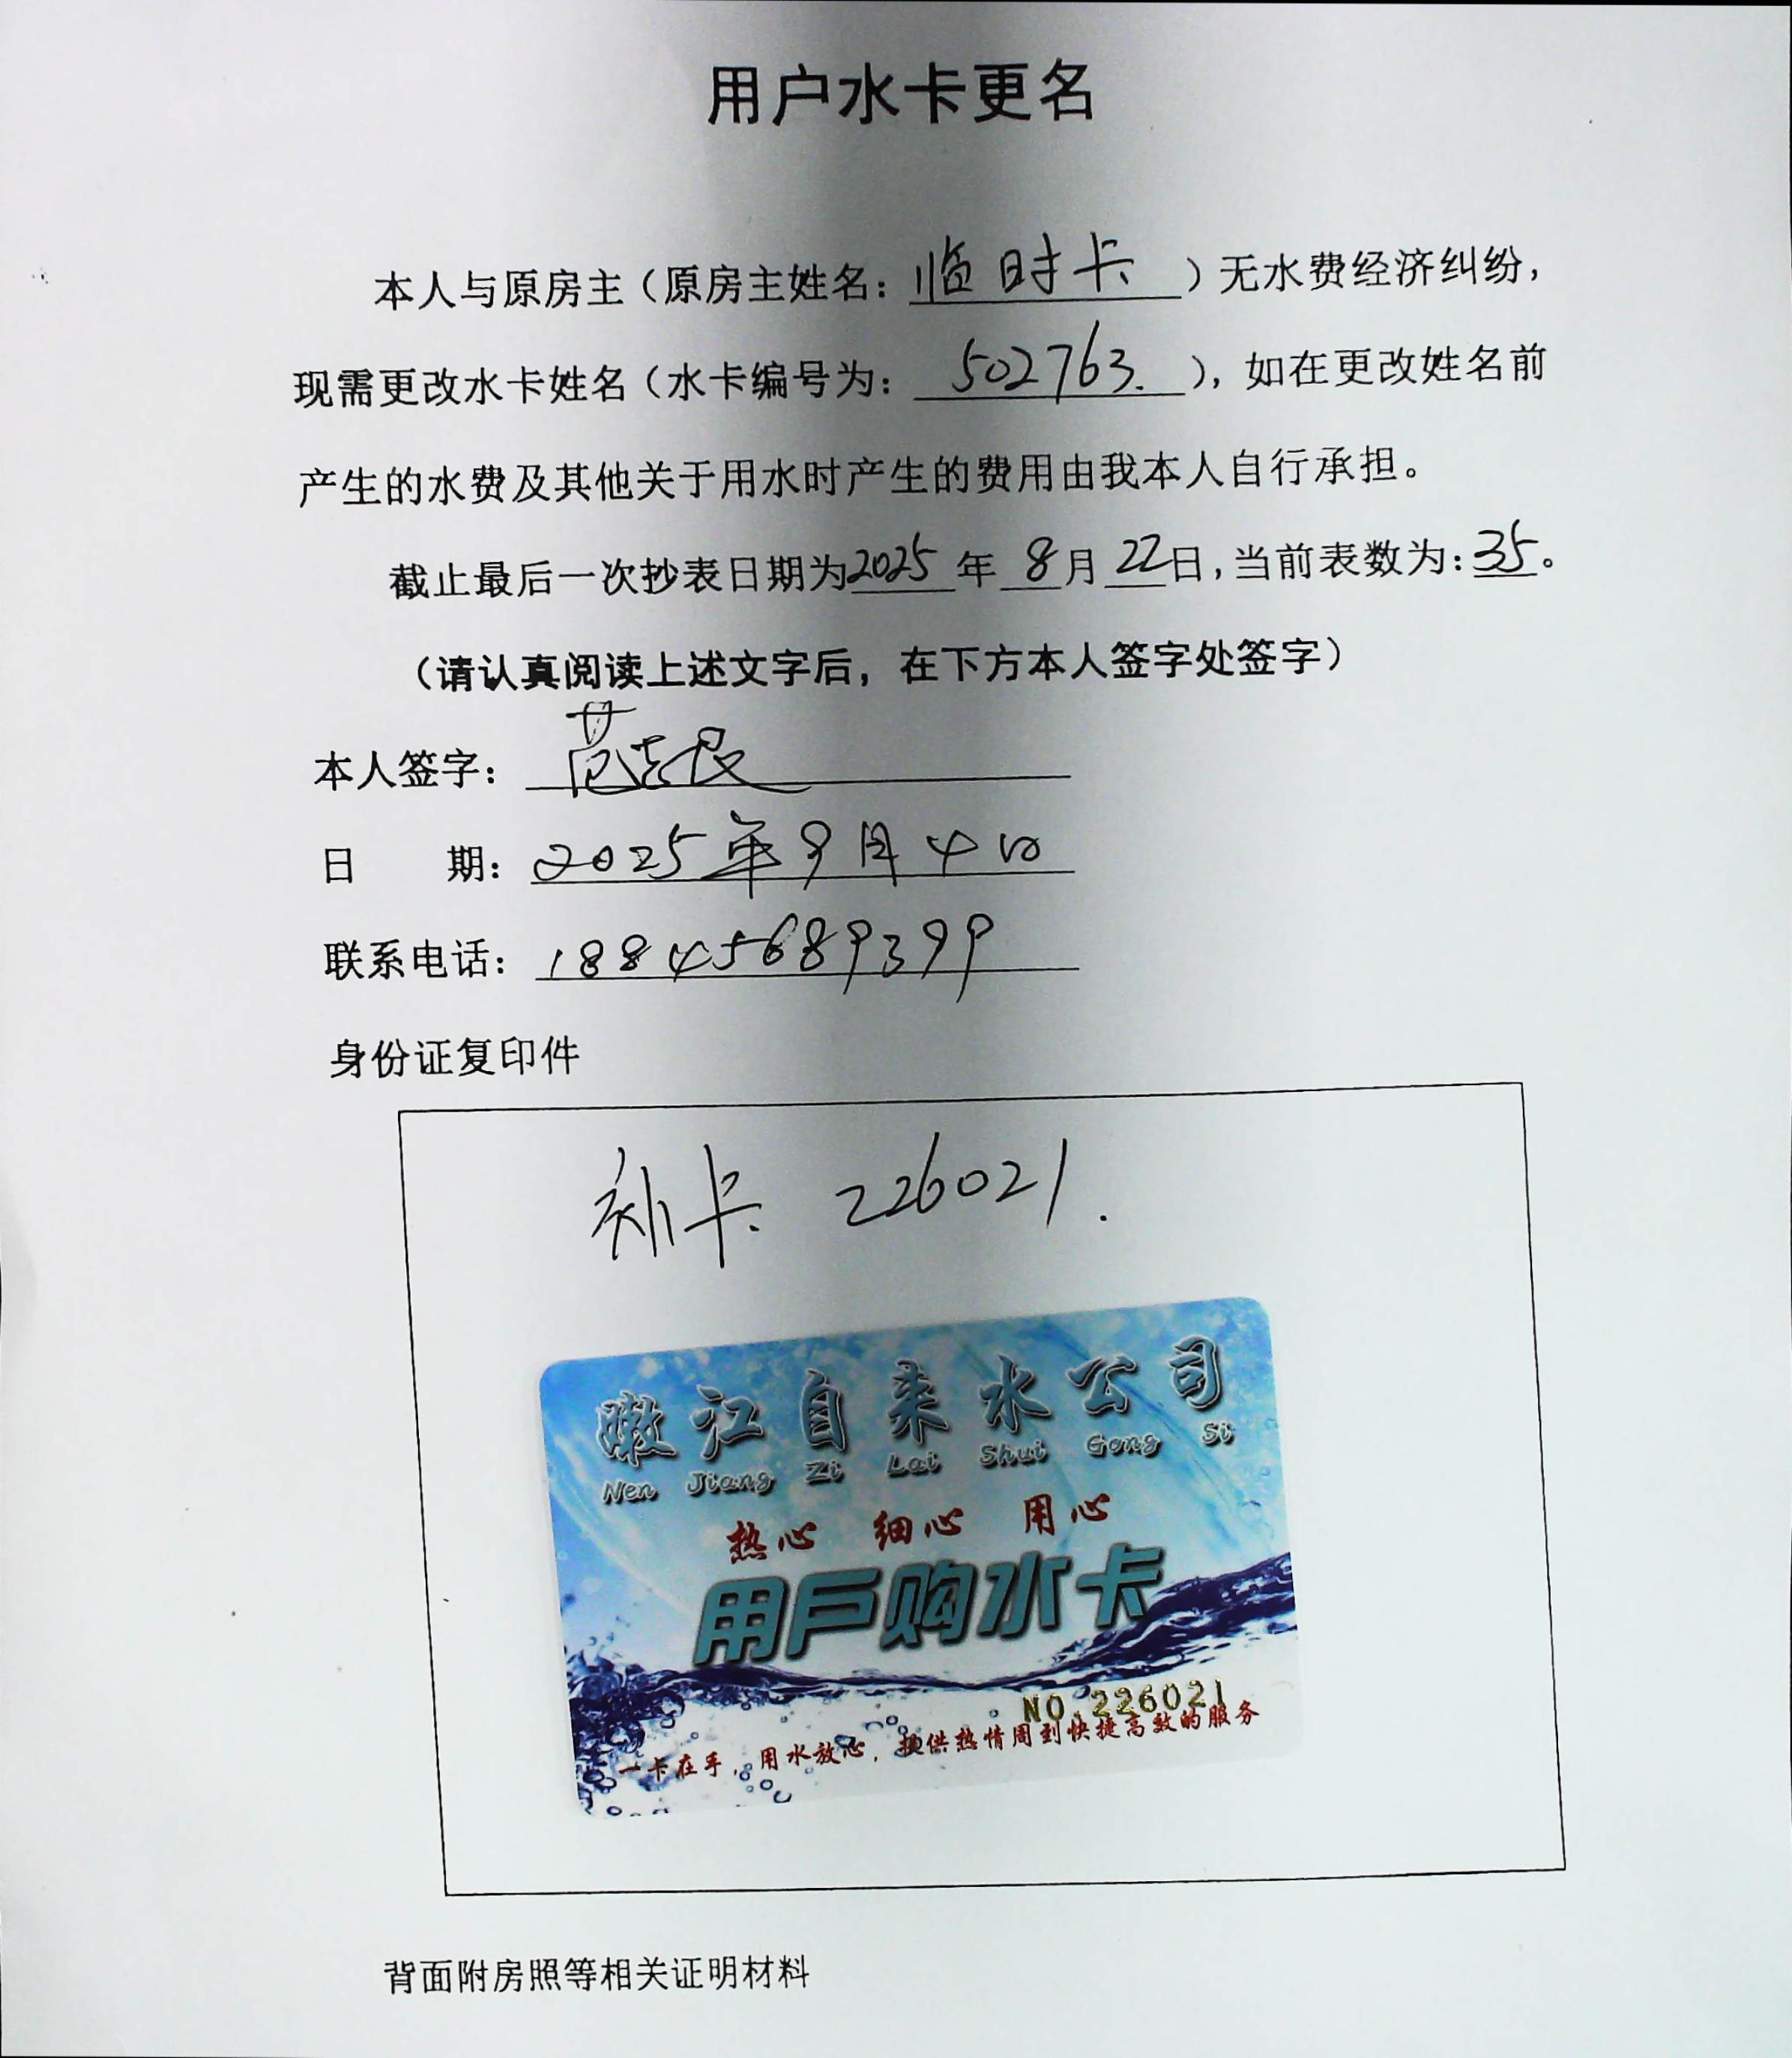 用户水卡更名
本人与原房主（原房主姓名：临时卡）无水费经济纠纷，
现需更改水卡姓名（水卡编号为：502763.），如在更改姓名前
产生的水费及其他关于用水时产生的费用由我本人自行承担。
截止最后一次抄表日期为2025年8月22日，当前表数为：35。
（请认真阅读上述文字后，在下方本人签字处签字）
本人签字：
日期：2025年9月4日
联系电话：18845689399
身份证复印件
补卡 226021.
嫩江自来水公司
Nen Jiang Zi Lai Shui Gong Si
热心 细心 用心
用户购水卡
NO.226021
一卡在手，用水放心，提供热情周到快捷高效的服务
背面附房照等相关证明材料